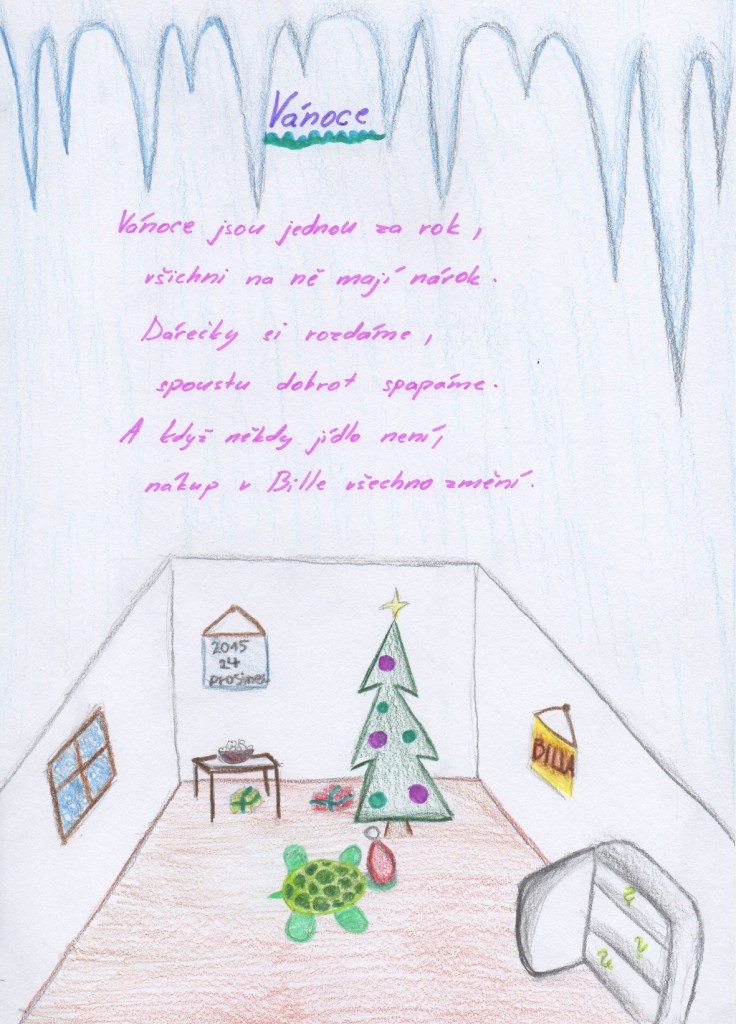 Vánoce
Vánoce jsou jednou za rok,
všichni na ně mají nárok.
Dárečky si rozdáme,
spoustu dobrot spapáme.
A když někdy jídlo není,
nákup v Bille všechno změní.
2015
24
prosinec
BILLA